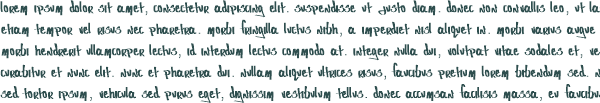 lorem ipsum dolor sit amet, consectetur adipiscing elit. suspendisse ut justo diam. donec non convallis leo, ut la
etiam tempor vel risus nec pharetra. morbi fringilla luctus nibh, a imperdiet nisl aliquet in. morbi varius augue
morbi hendrerit ullamcorper lectus, id interdum lectus commodo at. integer nulla dui, volutpat vitae sodales et, ve
curabitur et nunc elit. nunc et pharetra dui. nullam aliquet ultrices risus, faucibus pretium lorem bibendum sed. n
sed tortor ipsum, vehicula sed purus eget, dignissim vestibulum tellus. donec accumsan facilisis massa, eu faucibu